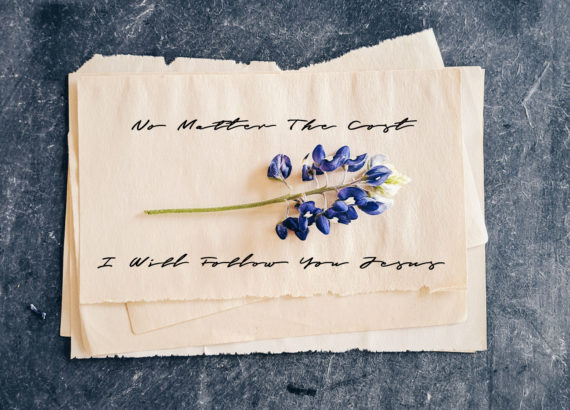 No Matter The Cost
I Will Follow You Jesus